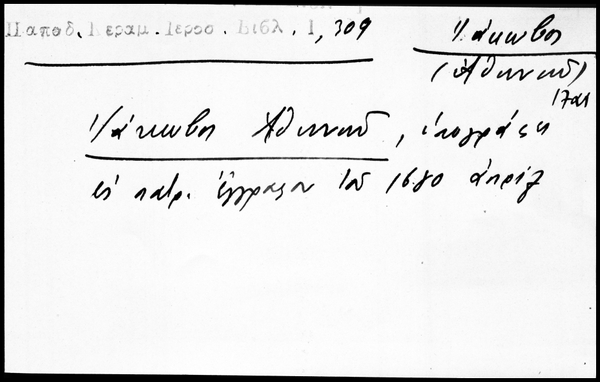 Παπαδ. Κεραμ. Ιεροσ. Βιβλ. Ι, 309
Ἰάκωβος
(Ἀθηνῶν)
17αι
Ἰάκωβος Ἀθηνῶν, ὑπογράφει
εἰς πατρ. ἔγγραφον τοῦ 1680 ἀπρίλ